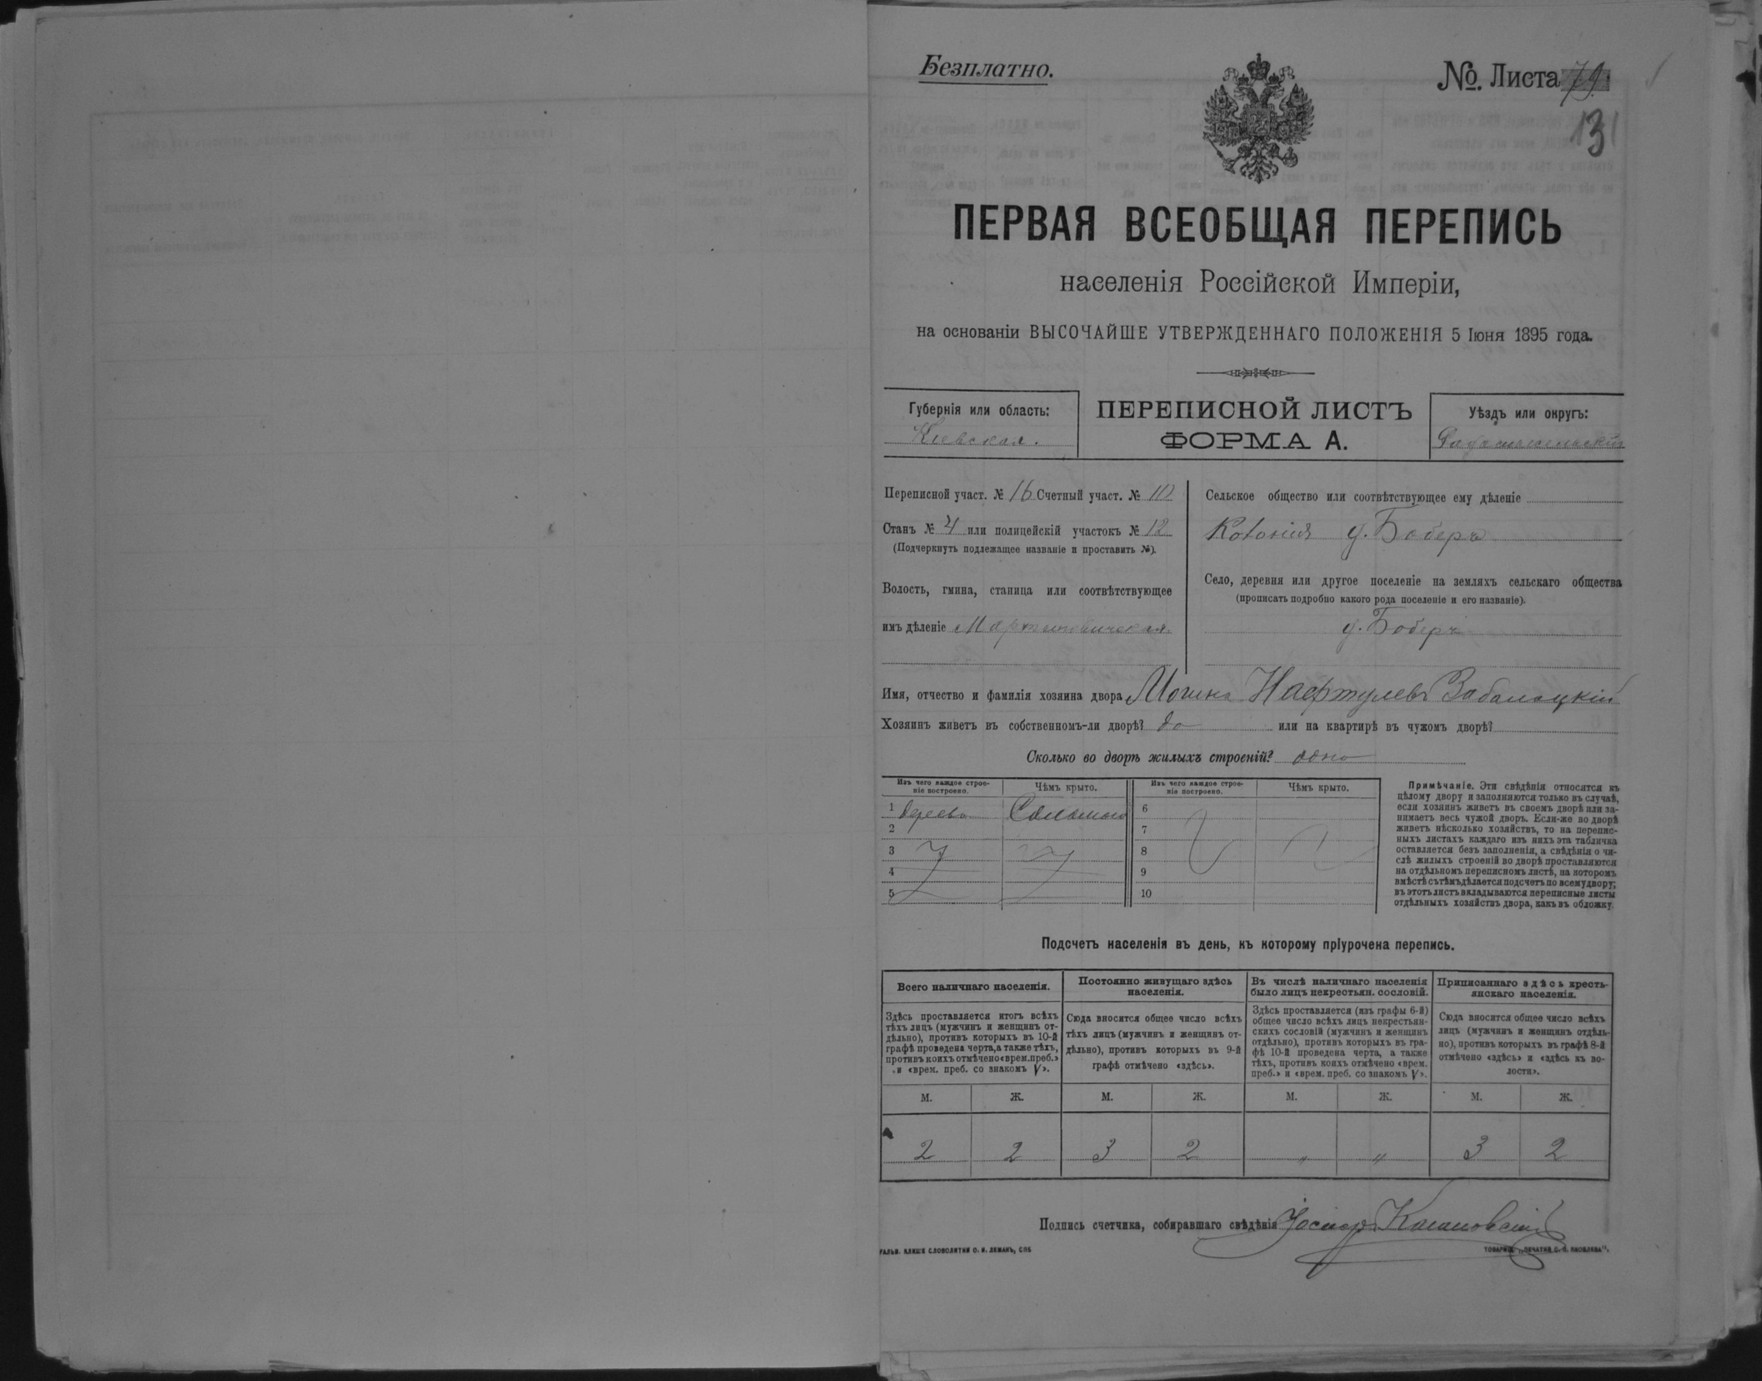 Безплатно.
№. Листа 79.
131
ПЕРВАЯ ВСЕОБЩАЯ ПЕРЕПИСЬ
населенія Россійской Имперіи,
на основаніи ВЫСОЧАЙШЕ УТВЕРЖДЕННАГО ПОЛОЖЕНІЯ 5 Іюня 1895 года.
Губернія или область:
Кіевская.
ПЕРЕПИСНОЙ ЛИСТЪ
ФОРМА А.
Уѣздъ или округъ:
Радомысльскій
Переписной участ. № 16 Счетный участ. № 10
Станъ № 4 или полицейскій участокъ № 12
(Подчеркнуть подлежащее названіе и проставить №).
Волость, гмина, станица или соотвѣтствующее
имъ дѣленіе Мартиновичская
Сельское общество или соотвѣтствующее ему дѣленіе
Колонія д. Боберъ
Село, деревня или другое поселеніе на земляхъ сельскаго общества
(прописать подробно какого рода поселеніе и его названіе).
д. Боберъ
Имя, отчество и фамилія хозяина двора Нафтулевъ Заболоцкій
Хозяинъ живетъ въ собственномъ-ли дворѣ? да или на квартирѣ въ чужомъ дворѣ?
Сколько во дворѣ жилыхъ строеній? одно
Изъ чего каждое строеніе построено. Чѣмъ крыто. Изъ чего каждое строеніе построено. Чѣмъ крыто.
1 дерева Соломою 6
2 7
3 8
4 9
5 10
Примѣчаніе. Эти свѣдѣнія относятся къ
цѣлому двору и заполняются только въ случаѣ,
если хозяинъ живетъ въ своемъ дворѣ или за-
нимаетъ весь чужой дворъ. Если-же во дворѣ
живетъ нѣсколько хозяйствъ, то на перепис-
ныхъ листахъ каждаго изъ нихъ эта табличка
оставляется безъ заполненія, а свѣдѣнія о чи-
слѣ жилыхъ строеній во дворѣ проставляются
на отдѣльномъ переписномъ листѣ, на которомъ
вмѣстѣ съ тѣмъ дѣлается подсчетъ по всему двору;
въ этотъ листъ вкладываются переписные листы
отдѣльныхъ хозяйствъ двора, какъ въ обложку.
Подсчетъ населенія въ день, къ которому пріурочена перепись.
Всего наличнаго населенія.
Здѣсь проставляется итогъ всѣхъ
тѣхъ лицъ (мужчинъ и женщинъ от-
дѣльно), противъ которыхъ въ 10-й
графѣ проведена черта, а также тѣхъ,
противъ коихъ отмѣчено «врем. преб.»
и «врем. преб. со знакомъ V».
Постоянно живущаго здѣсь
населенія.
Сюда вносится общее число всѣхъ
тѣхъ лицъ (мужчинъ и женщинъ от-
дѣльно), противъ которыхъ въ 9-й
графѣ отмѣчено «здѣсь».
Въ числѣ наличнаго населенія
было лицъ некрестьян. сословій.
Здѣсь проставляется (изъ графы 6-й)
общее число всѣхъ лицъ некрестьян-
скихъ сословій (мужчинъ и женщинъ
отдѣльно), противъ которыхъ въ гра-
фѣ 10-й проведена черта, а также
тѣхъ, противъ коихъ отмѣчено «врем.
преб.» и «врем. преб. со знакомъ V».
Приписаннаго здѣсь кресть-
янскаго населенія.
Сюда вносится общее число всѣхъ
лицъ (мужчинъ и женщинъ отдѣль-
но), противъ которыхъ въ графѣ 8-й
отмѣчено «здѣсь» и «здѣсь въ во-
лости».
М. Ж. М. Ж. М. Ж. М. Ж.
2 2 3 2 " " 3 2
Подпись счетчика, собиравшаго свѣдѣнія
ГАЛЬВ. КЛИШЕ СЛОВОЛИТНИ О. И. ЛЕМАНЪ, СПБ.
ТОВАРИЩ. „ПЕЧАТНЯ С. П. ЯКОВЛЕВА“.